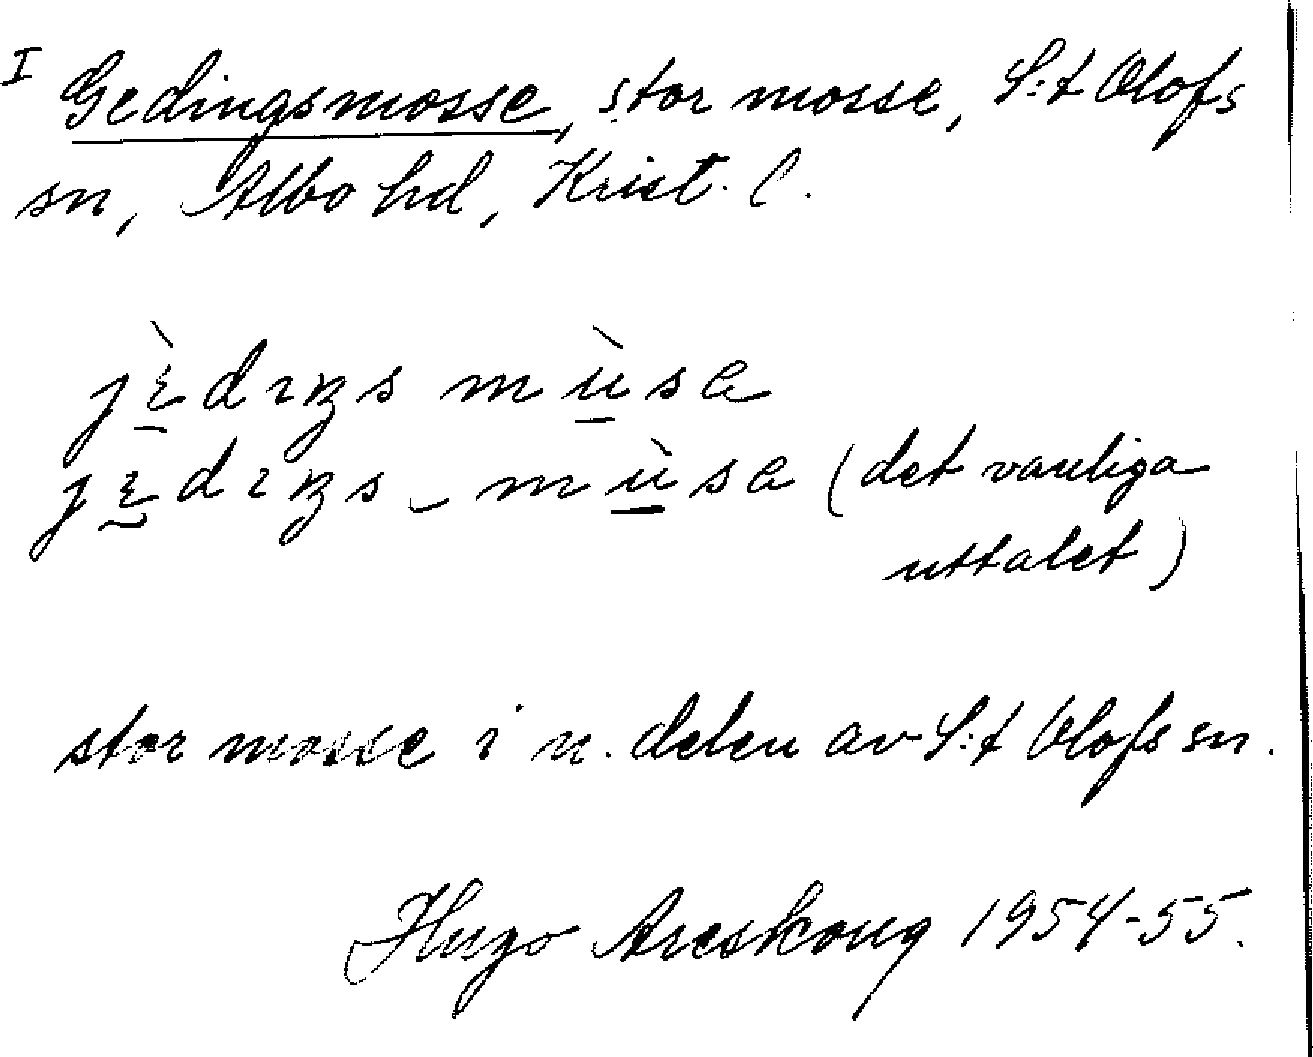 I Gedingsmosse, stor mosse, S:t Olofs
sn, Albo hd, Krist. l.
jɛ̱̀dɪŋs mù̱sɐ
jɛ̰dɪŋs‿mù̱sɐ (det vanliga
uttalet)
stor mosse i n. delen av S:t Olofs sn.
Hugo Areskoug 1954-55.